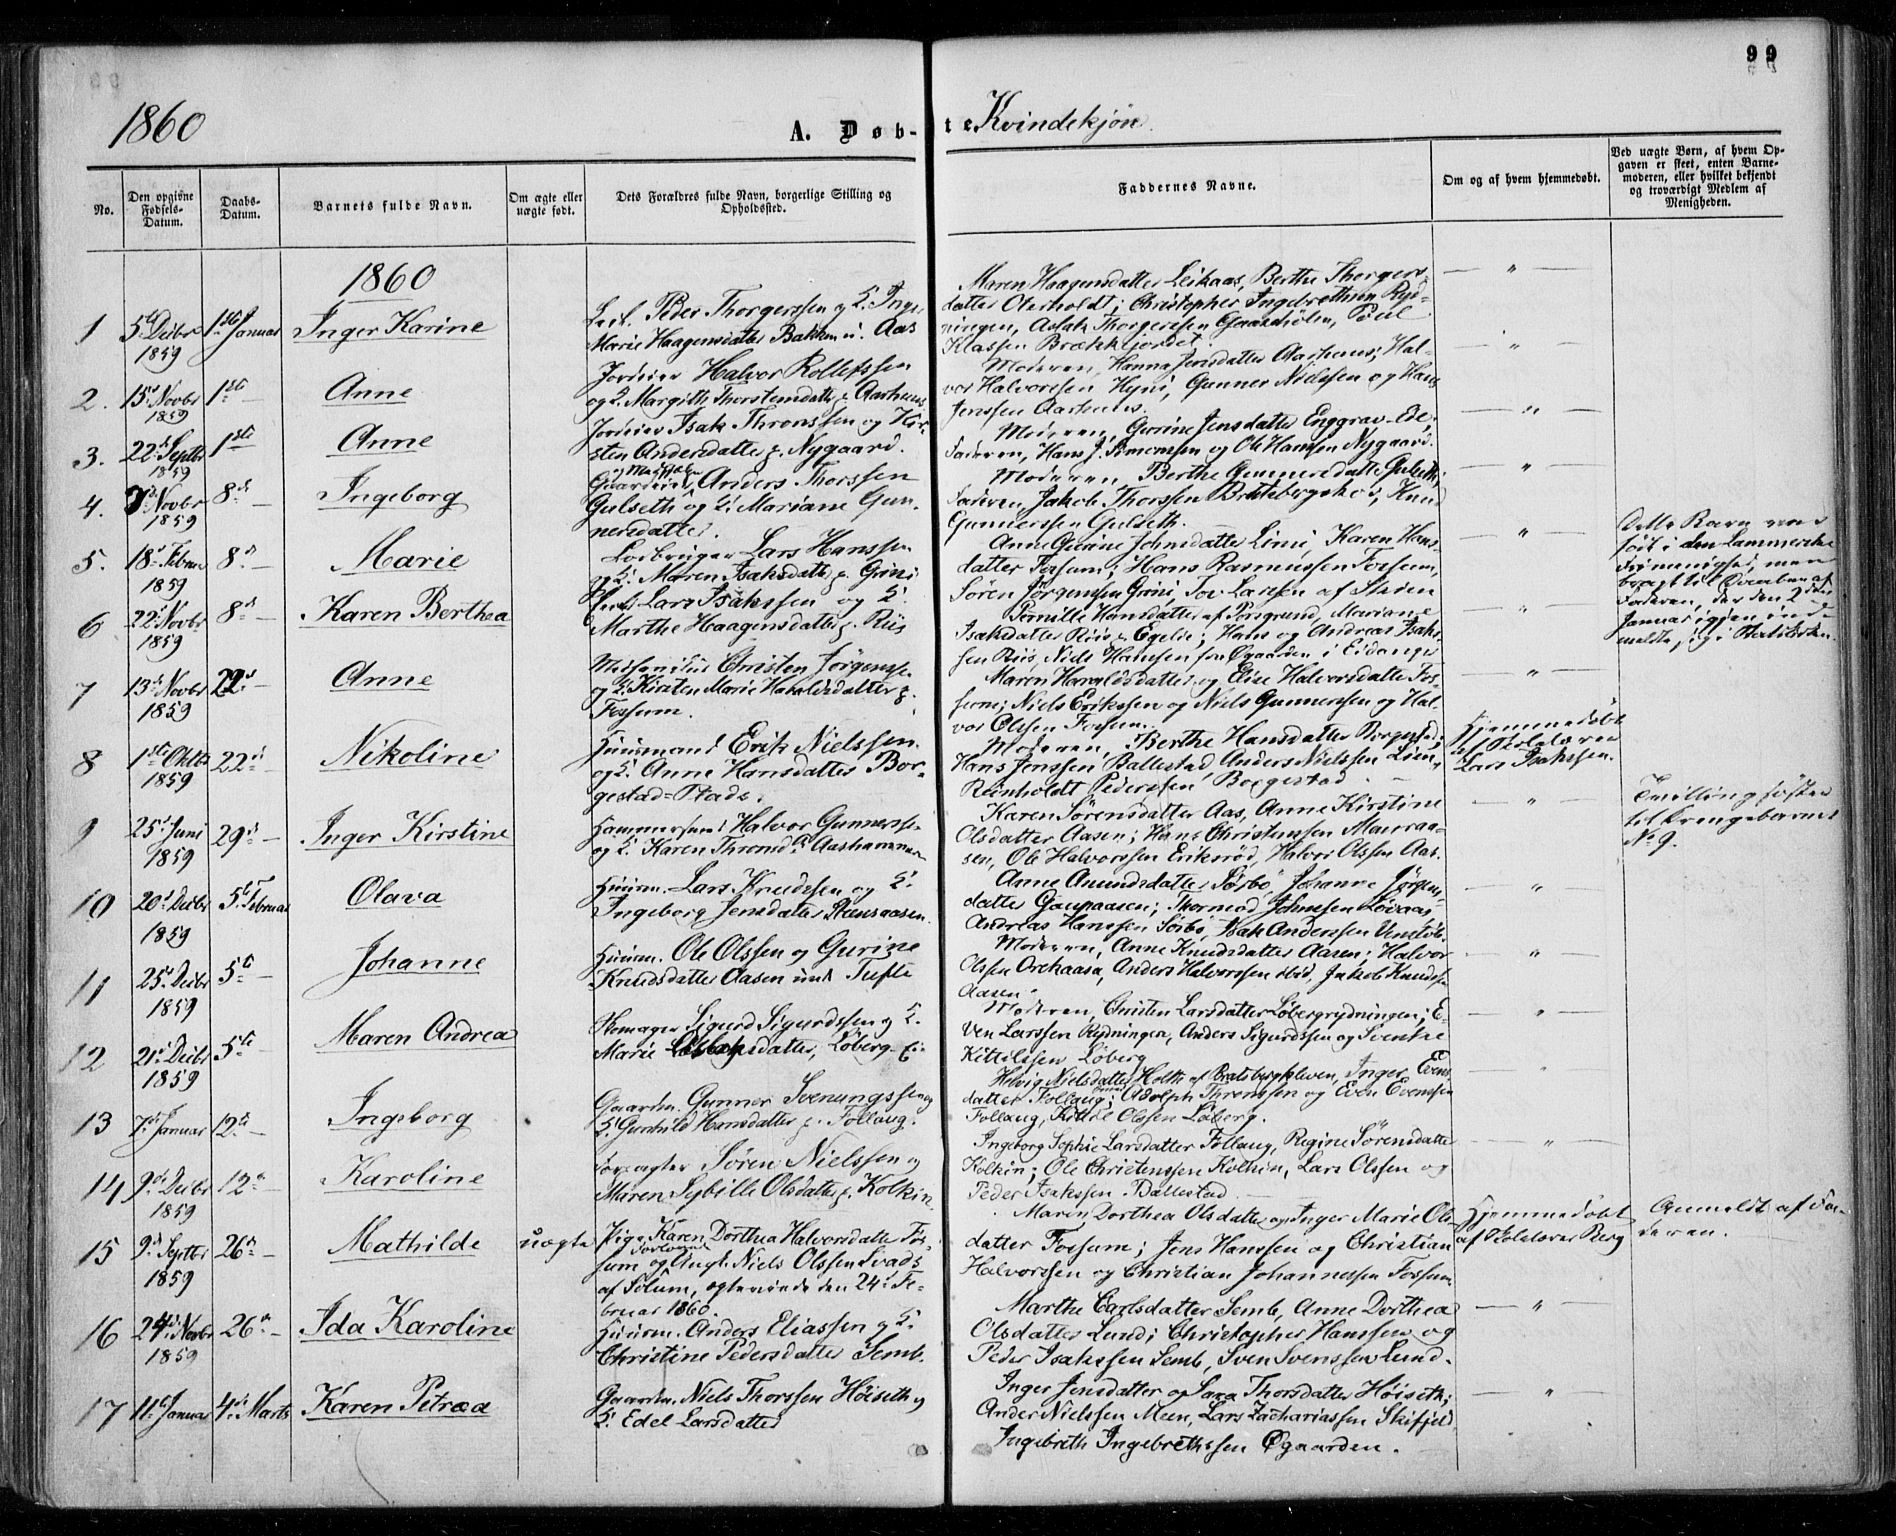 99
1860
A. Døbte Kvindekjøn.
No.
Den opgivne Fødsels-Datum.
Daabs-Datum.
Barnets fulde Navn.
Om ægte eller uægte født.
Dets Forældres fulde Navn, borgerlige Stilling og Opholdssted.
Faddernes Navne.
Om og af hvem hjemmedøbt.
Ved uægte Børn, af hvem Opgaven er skeet, enten Barnemoderen, eller hvilket bekjendt og troværdigt Medlem af Menigheden.
1860
1 5te Decbr 1859 1ste Januar Inger Karine
Peder Thorgerssen og H. Inger
Marie Haagensdatter Bakken u. Aas
Maren Haagensdatter Leikaas, Berthe Thorgers-
datter Oterholdt; Christopher Ingebrethsen Ryd-
ningen, Aslak Thorgerssen Gaasehølen, Poul
Klassen Brækkejordet.
2. 15de Novbr 1859 1ste Anne
Halvor Rollefssen
og H. Margith Thorstensdatter p. Aarhuus
Moderen, Hanna Jensdatter Aarhuus; Hal-
vor Halvorssen Hyni, Gunner Nielssen og Hans
Jenssen Aarhuus.
3. 22de Septbr 1859 1ste Anne
Isak Thronssen og Kir-
sten Andersdatter p. Nygaard.
Moderen, Gurine Jensdatter Enggrav-Eie;
Faderen, Hans J. Simonsen og Ole Hansen Nygaard.
4. Novbr 1859 8de Ingeborg
Anders Thorssen
Gulseth og H. Mariane Gun-
nersdatter.
Moderen, Berthe Gunnersdatter Gulseth;
Faderen, Jakob Thorssen Bratsbergskov, Knud
Gunnerssen Gulseth.
5. 18de Februar 1859 8de Marie
Lars Hanssen
og H. Maren Isaksdatter p. Grini
Anne Gurine Johnsdatter Limi, Karen Hans-
datter Fossum; Hans Rasmussen Fossum,
Sören Jörgenssen Grini, Tov Larssen af Skien
Dette Barn var
født i den Lammerske
Frimenighed, men
bragt til Overben af
Faderen, der den 2den
Januar igjen ind-
meldte sig i Statskirken.
6 22de Novbr 1859 8de Karen Berthea
Lars Isakssen og H.
Marthe Haagensdatter p. Riis
Pernille Hansdatter af Porsgrund, Mariane
Isaksdatter Riis p. Egelie; Hans og Andreas Isaks-
sen Riis, Niels Hanssen fra Øgaarden i Eidanger
7 13de Novbr 1859 22de Anne
Christen Jörgenssen
og H. Kirsten Marie Haraldsdatter p.
Fossum.
Maren Haraldsdatter og Elise Halvorsdatter Fos-
sum; Niels Erikssen og Niels Gunnerssen og Hal-
vor Olssen Fossum.
8 1ste Oktbr 1859 22de Nikoline
Huusmand Erik Nielssen
og H. Anne Hansdatter Bor-
gestad-Plads.
Moderen, Berthe Hansdatter Borgestad;
Hans Jenssen Ballestad, Anders Nielssen Lien,
Reinholdt Pederssen Borgestad
Hjemmedöbt
af Skolelærer
Lars Isakssen.
9 25de Juni 1859 29de Inger Kirstine
Hammersmed Halvor Gunnerssen
og H. Karen Thronsdr. Aashammeren
Karen Sörensdatter Aas, Anne Kirstine
Olsdatter Aasen; Hans Christenssen Mauraa-
sen, Ole Halvorssen Eriksröd, Halvor Olssen Aas.
Tvillingsöster
til Drengebarnet
No 9.
10 20de Decbr 1859 5te Februar Olava
Huusm. Lars Knudssen og H.
Ingeborg Jensdatter Steensaasen.
Anne Amundsdatter Sörbö, Johanne Jörgens-
datter Gaupaasen; Thormod Johnssen Lövaas
Andreas Hanssen Sörbö, Isak Anderssen Venstöb
11 25de Decbr 1859 5te Johanne
Huusm. Ole Olssen og Gurine
Knudsdatter Aasen und. Tufte
Moderen, Anne Knudsdatter Aasen; Halvor
Olssen Orekaasa, Anders Halvorssen ibid, Jakob Knudssen
Aasen.
12 21de Decbr 1859 5te Maren Andrea
Skomager Sigurd Sigurdssen og H.
Marie datter, Löberg-Ei
Moderen, Christen Larsdatter Löbergrydningen; E-
ven Larssen Rydningen, Anders Sigurdssen og Svenke
Kittilssen Löberg
13 7de Januar 12te Ingeborg
Gaardm. Gunner Svenungssen og
H. Gunhild Hansdatter p. Follaug.
Helvig Nielsdatter Holth af Bratsbergkleven, Inger Evens-
datter Follaug; Adolph Thronssen og Even Evenssen
Follaug, Kittil Olssen Löberg.
14 9de Decbr 1859 12te Karoline
Forpagter Sören Nielssen og
Maren Sybille Olsdatter p. Kolkin
Ingeborg Sophie Larsdatter Follaug, Regine Sörensdatter
Kolkin; Ole Christenssen Kolkin, Lars Olssen og
Peder Isakssen Ballestad
15 9de Septbr 1859 26de Mathilde uægte
Pige Karen Dorthea Halvorsdatter Fos-
sum og Ungk. Niels Olssen Svads
af Solum, ægteviede den 24de Fe-
bruar 1860.
Maren Dorthea Olsdatter og Inger Marie Ols-
datter Fossum; Jens Hanssen og Christian
Halvorssen og Christian Johannessen Fossum
Hjemmedöbt
af Skolelærer Berg
Anmeldt af Fa-
deren.
16 24de Novbr 1859 26de Ida Karoline
Huusm. Anders Eliassen og H.
Christine Pedersdatter Semb.
Marthe Carlsdatter Semb, Anne Dorthea
Olsdatter Lund; Christopher Hanssen og
Peder Isakssen Semb, Sven Svenssen Lund.
17 11te Januar 4de Marts Karen Petrea
Gaardm. Niels Thorssen Höiseth og
H. Edel Larsdatter
Inger Jensdatter og Sara Thorsdatter Höiseth;
Anders Nielssen Meen, Lars Zachariassen Skifjeld
Ingebreth Ingebrethssen Øgaarden.